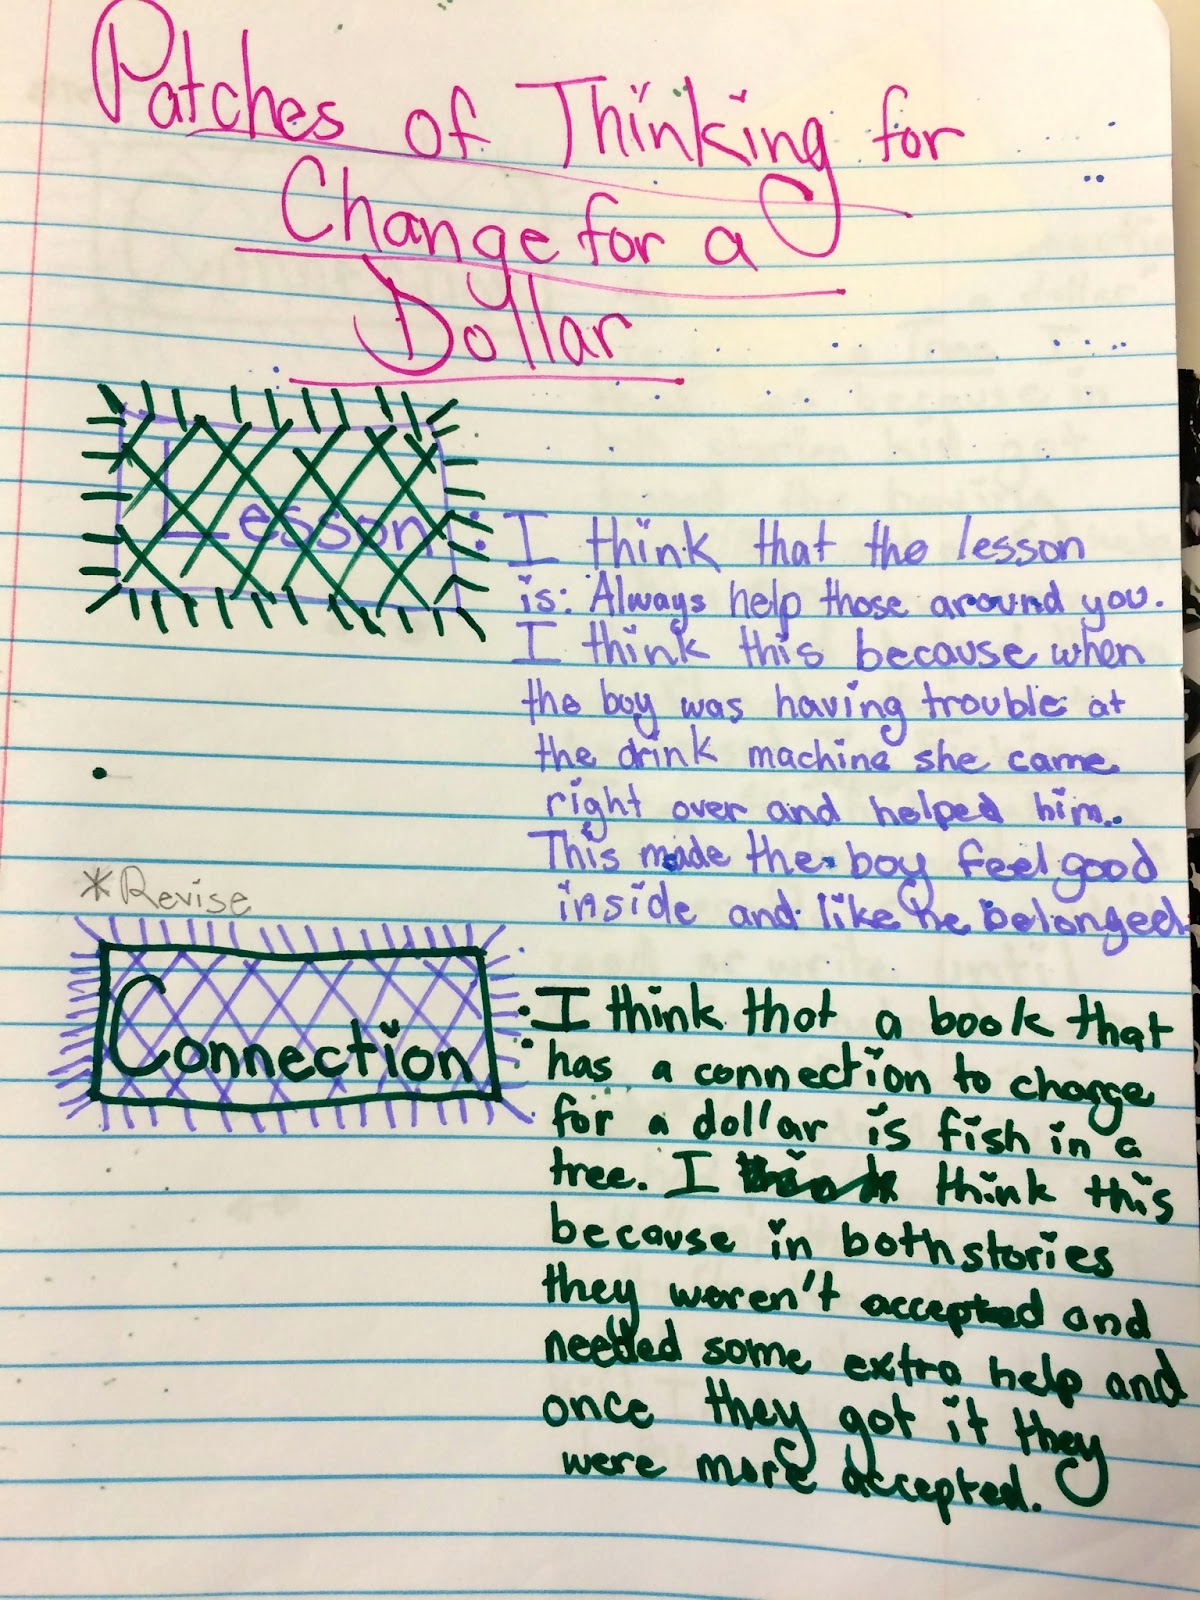 Patches of Thinking for
Change for a
Dollar
Lesson: I think that the lesson
is: Always help those around you.
I think this because when
the boy was having trouble at
the drink machine she came
right over and helped him.
This made the boy feel good
inside and like he belonged
*Revise
Connection: I think that a book that
has a connection to change
for a dollar is fish in a
tree. I think think this
because in both stories
they weren't accepted and
needed some extra help and
once they got it they
were more accepted.